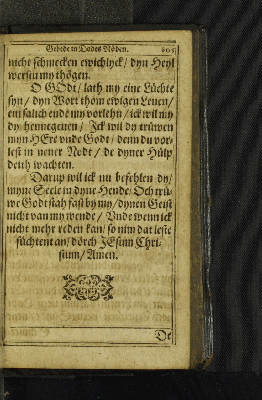 Gebede in Dodes Nöden.
nicht schmecken ewichlyck / dyn Heyl
werstu my thögen.
O GOdt / lath my eine Lüchte
syn / dyn Wort thom ewigen Leuen /
ein salich ende my vorlehn / ick wil my
dy hennegeuen / Ick wil dy trüwen
myn HEre vnde Godt / denn du vor-
lest in nener Nodt / de dyner Hülp
deith wachten.
Darup wil ick nu befehlen dy /
myne Seele in dyne Hende / Och trü-
we Godt stah fast by my / dynen Geist
nicht van my wende / Vnde wenn ick
nicht mehr reden kan / so nim dat leste
süchtent an / dörch JEsum Chri-
stum / Amen.
De